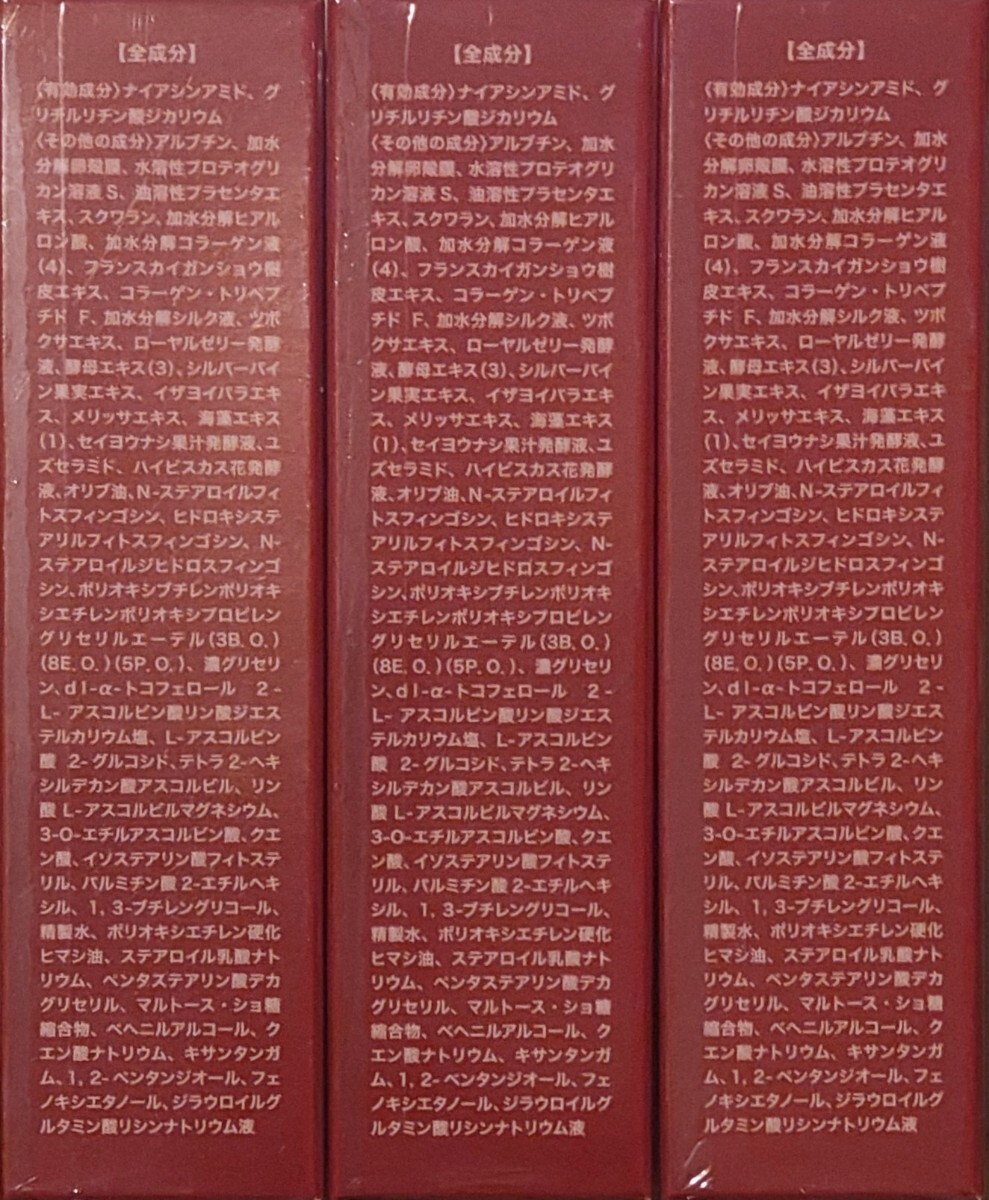 【全成分】
〈有効成分〉ナイアシンアミド、グ
リチルリチン酸ジカリウム
〈その他の成分〉アルブチン、加水
分解卵殻膜、水溶性プロテオグリ
カン溶液 S、油溶性プラセンタエ
キス、スクワラン、加水分解ヒアル
ロン酸、加水分解コラーゲン液
(4)、フランスカイガンショウ樹
皮エキス、コラーゲン・トリペプ
チド F、加水分解シルク液、ツボ
クサエキス、ローヤルゼリー発酵
液、酵母エキス(3)、シルバーバイ
ン果実エキス、イザヨイバラエキ
ス、メリッサエキス、海藻エキス
(1)、セイヨウナシ果汁発酵液、ユ
ズセラミド、ハイビスカス花発酵
液、オリブ油、N-ステアロイルフィ
トスフィンゴシン、ヒドロキシステ
アリルフィトスフィンゴシン、N-
ステアロイルジヒドロスフィンゴ
シン、ポリオキシブチレンポリオキ
シエチレンポリオキシプロピレン
グリセリルエーテル(3B.O.)
(8E.O.)(5P.O.)、濃グリセリ
ン、dl-α-トコフェロール 2-
L- アスコルビン酸リン酸ジエス
テルカリウム塩、L-アスコルビン
酸 2-グルコシド、テトラ2-ヘキ
シルデカン酸アスコルビル、リン
酸 L-アスコルビルマグネシウム、
3-O-エチルアスコルビン酸、クエ
ン酸、イソステアリン酸フィトステ
リル、パルミチン酸2-エチルヘキ
シル、1,3-ブチレングリコール、
精製水、ポリオキシエチレン硬化
ヒマシ油、ステアロイル乳酸ナト
リウム、ペンタステアリン酸デカ
グリセリル、マルトース・ショ糖
縮合物、ベヘニルアルコール、ク
エン酸ナトリウム、キサンタンガ
ム、1,2-ペンタンジオール、フェ
ノキシエタノール、ジラウロイルグ
ルタミン酸リシンナトリウム液
【全成分】
〈有効成分〉ナイアシンアミド、グ
リチルリチン酸ジカリウム
〈その他の成分〉アルブチン、加水
分解卵殻膜、水溶性プロテオグリ
カン溶液 S、油溶性プラセンタエ
キス、スクワラン、加水分解ヒアル
ロン酸、加水分解コラーゲン液
(4)、フランスカイガンショウ樹
皮エキス、コラーゲン・トリペプ
チド F、加水分解シルク液、ツボ
クサエキス、ローヤルゼリー発酵
液、酵母エキス(3)、シルバーバイ
ン果実エキス、イザヨイバラエキ
ス、メリッサエキス、海藻エキス
(1)、セイヨウナシ果汁発酵液、ユ
ズセラミド、ハイビスカス花発酵
液、オリブ油、N-ステアロイルフィ
トスフィンゴシン、ヒドロキシステ
アリルフィトスフィンゴシン、N-
ステアロイルジヒドロスフィンゴ
シン、ポリオキシブチレンポリオキ
シエチレンポリオキシプロピレン
グリセリルエーテル(3B.O.)
(8E.O.)(5P.O.)、濃グリセリ
ン、dl-α-トコフェロール 2-
L- アスコルビン酸リン酸ジエス
テルカリウム塩、L-アスコルビン
酸 2-グルコシド、テトラ2-ヘキ
シルデカン酸アスコルビル、リン
酸 L-アスコルビルマグネシウム、
3-O-エチルアスコルビン酸、クエ
ン酸、イソステアリン酸フィトステ
リル、パルミチン酸2-エチルヘキ
シル、1,3-ブチレングリコール、
精製水、ポリオキシエチレン硬化
ヒマシ油、ステアロイル乳酸ナト
リウム、ペンタステアリン酸デカ
グリセリル、マルトース・ショ糖
縮合物、ベヘニルアルコール、ク
エン酸ナトリウム、キサンタンガ
ム、1,2-ペンタンジオール、フェ
ノキシエタノール、ジラウロイルグ
ルタミン酸リシンナトリウム液
【全成分】
〈有効成分〉ナイアシンアミド、グ
リチルリチン酸ジカリウム
〈その他の成分〉アルブチン、加水
分解卵殻膜、水溶性プロテオグリ
カン溶液 S、油溶性プラセンタエ
キス、スクワラン、加水分解ヒアル
ロン酸、加水分解コラーゲン液
(4)、フランスカイガンショウ樹
皮エキス、コラーゲン・トリペプ
チド F、加水分解シルク液、ツボ
クサエキス、ローヤルゼリー発酵
液、酵母エキス(3)、シルバーバイ
ン果実エキス、イザヨイバラエキ
ス、メリッサエキス、海藻エキス
(1)、セイヨウナシ果汁発酵液、ユ
ズセラミド、ハイビスカス花発酵
液、オリブ油、N-ステアロイルフィ
トスフィンゴシン、ヒドロキシステ
アリルフィトスフィンゴシン、N-
ステアロイルジヒドロスフィンゴ
シン、ポリオキシブチレンポリオキ
シエチレンポリオキシプロピレン
グリセリルエーテル(3B.O.)
(8E.O.)(5P.O.)、濃グリセリ
ン、dl-α-トコフェロール 2-
L- アスコルビン酸リン酸ジエス
テルカリウム塩、L-アスコルビン
酸 2-グルコシド、テトラ2-ヘキ
シルデカン酸アスコルビル、リン
酸 L-アスコルビルマグネシウム、
3-O-エチルアスコルビン酸、クエ
ン酸、イソステアリン酸フィトステ
リル、パルミチン酸2-エチルヘキ
シル、1,3-ブチレングリコール、
精製水、ポリオキシエチレン硬化
ヒマシ油、ステアロイル乳酸ナト
リウム、ペンタステアリン酸デカ
グリセリル、マルトース・ショ糖
縮合物、ベヘニルアルコール、ク
エン酸ナトリウム、キサンタンガ
ム、1,2-ペンタンジオール、フェ
ノキシエタノール、ジラウロイルグ
ルタミン酸リシンナトリウム液